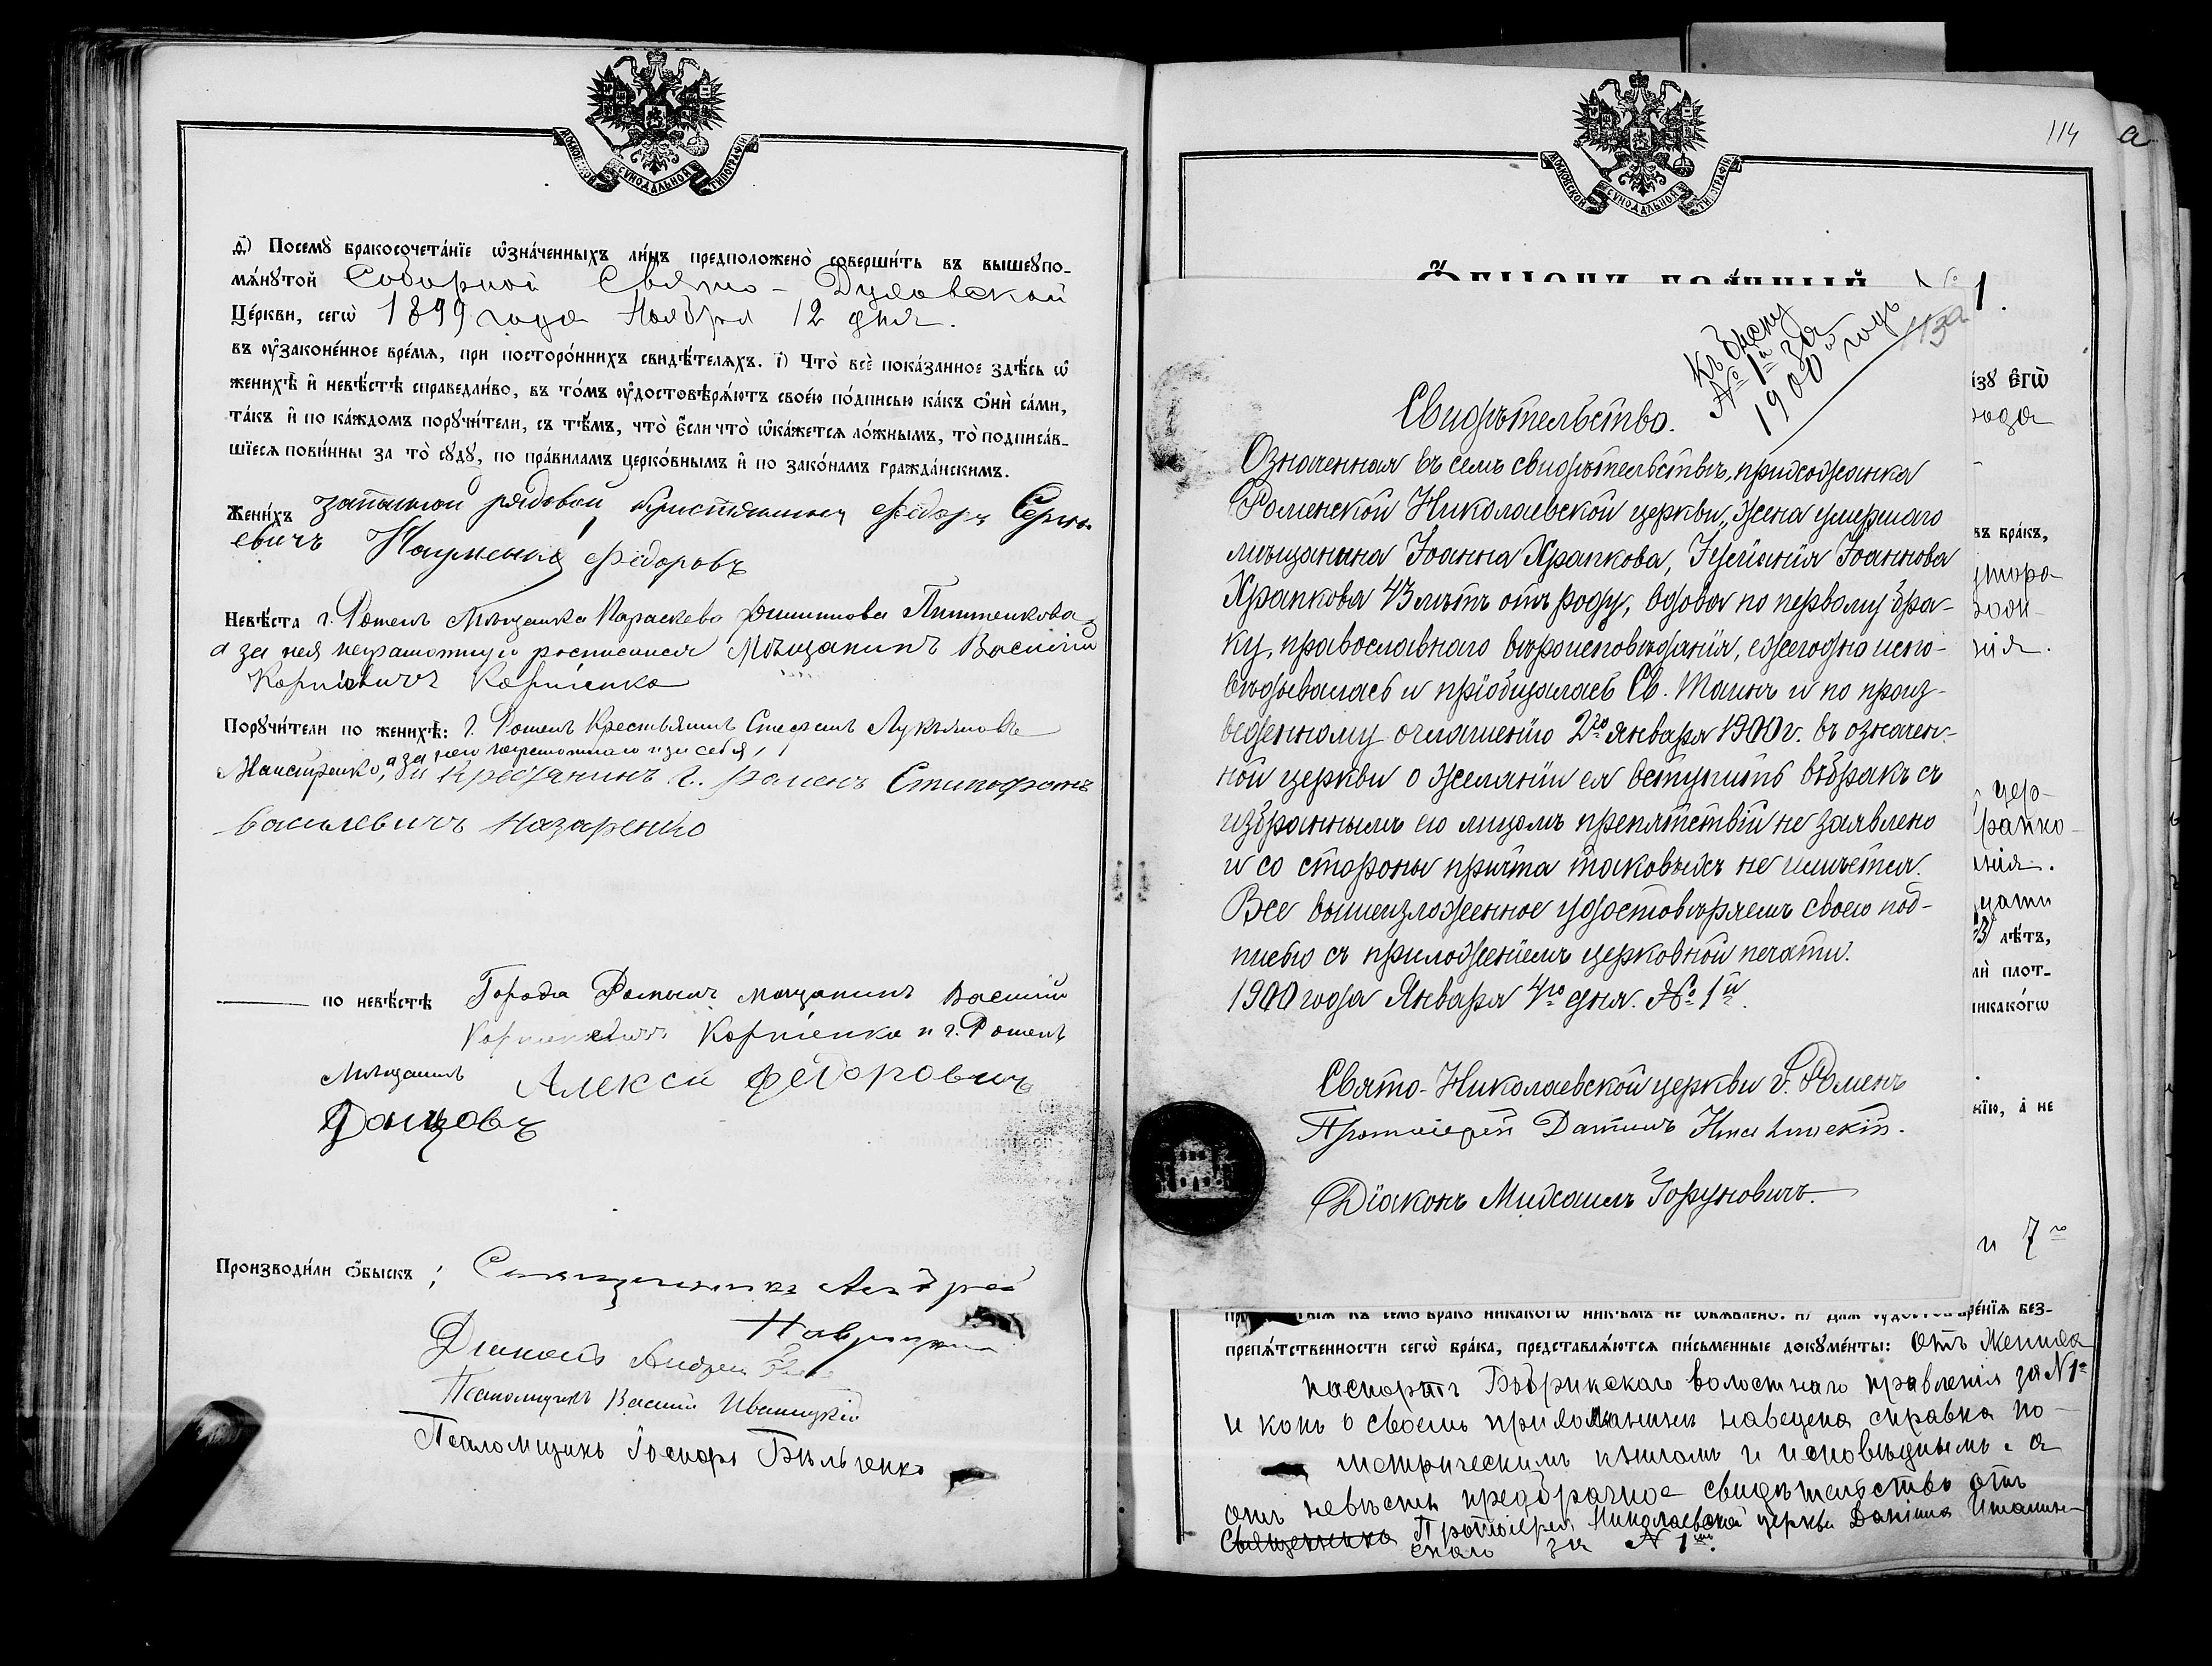 МОСКОВСКОЙ СѴНОДАЛЬНОЙ ТИПОГРАФІИ
д҃) Посемꙋ̀ бракосочета́нїе ѡ҆зна́ченныхъ ли́цъ предположено̀ соверши́ть въ вышеꙋпо-
мѧ́нꙋтой Соборной Свято-Духовской
Це́ркви, сегѡ̀ 1899 года Ноября 12 дня.
въ ᲂу҆зако́ненное вре́мѧ, при посторо́ннихъ свидѣ́телѧхъ. і҃) Что̀ всѐ пока́занное здѣ́сь ѡ҆
женихѣ̀ и҆ невѣ́стѣ справедли́во, въ то́мъ ᲂу҆достовѣрѧ́ютъ свое́ю по́дписью ка́къ ѻ҆нѝ са́ми,
та́къ и҆ по ка́ждомъ порꙋчи́тели, съ тѣ́мъ, что̀ є҆́сли что̀ ѡ҆ка́жетсѧ ло́жнымъ, то̀ подписа́в-
шїесѧ пови́нны за то̀ сꙋдꙋ̀, по пра́виламъ церко́внымъ и҆ по зако́намъ гражда́нскимъ.
Жени́хъ запасной рядовой крестьянинъ Федоръ Серги-
евичъ Науменко Федоровъ
Невѣ́ста г. Роменъ Мѣщанка Параскева Пиштенкова,
а за нея неграмотную росписался Мѣщанинъ Василій
Корніевичъ Корніенко
Порꙋчи́тели по женихѣ̀: г. Роменъ Крестьянинъ Стефанъ Лукьяновъ
а за него неграмотнаго и за себя
и Крестянинъ г. Роменъ
василевичъ Назаренко
по невѣ́стѣ Города Роменъ мѣщанинъ Василій
Корніевичъ Корніенко и г. Роменъ
Мѣщанинъ Алексей Федоровичъ
Донцовъ
Производи́ли ѻ҆́быскъ: Священникъ Андрей
Діаконъ Андрей
Псаломщикъ Василій Ивановицкій
Псаломщикъ Бѣльченко
МОСКОВСКОЙ СѴНОДАЛЬНОЙ ТИПОГРАФІИ
114 а
Ѻ҆́БЫСКЪ БРА́ЧНЫЙ № 1.
къ обыску
№ 1й за
1900й годъ
113а
Свидѣтельство.
Означенная въ семъ свидѣтельствѣ, прихожанка
Роменской Николаевской церкви, жена умершаго
мѣщанина Іоанна Храпкова, Іуліанія Іоаннова
Храпкова 43 лѣтъ отъ роду, вдова по первому бра-
ку, православнаго вѣроисповѣданія, ежегодно испо-
вѣдывалась и пріобщалась Св. Таинъ и по произ-
веденному оглашенію 2го Января 1900 г. въ означен-
ной церкви о желаніи ея вступить въ бракъ съ
избраннымъ ею лицомъ препятствій не заявлено
и со стороны причта таковыхъ не имѣется.
Все вышеизложенное удостовѣряемъ своею под-
писью съ приложеніемъ церковной печати.
1900 года Января 4го дня. № 1й.
Свято-Николаевской церкви г. Роменъ
Протоіерей Даніилъ
Діаконъ Михаилъ Горуновичъ.
є҆гѡ̀
года
въ бра́къ,
нія.
цер-
Храпко-
нія.
лѣ́тъ,
лѝ плот-
никако́гѡ
а҆ не
и 7го
препѧ́тственности сегѡ̀ бра́ка, представлѧ́ютсѧ пи́сьменные докꙋме́нты: Отъ Жениха
паспортъ Бобрикскаго волостнаго правленія за № 1й
и какъ о своемъ прихожанинѣ наведена справка по
метрическимъ книгамъ и исповѣднымъ, а
отъ невѣсты предбрачное свидѣтельство отъ
Священника Протоіерея Николаевской церкви Даніила
скаго за № 1й.